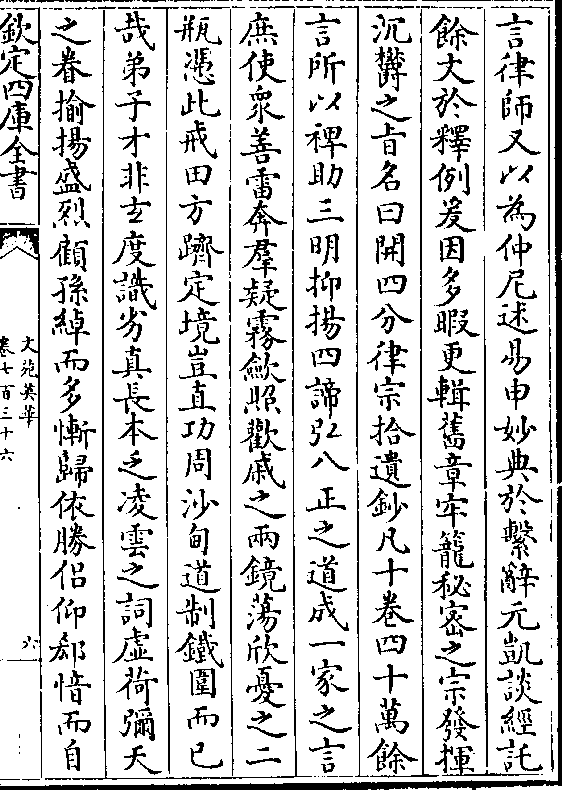 言律師又以為仲尼述易申妙典於繫辭元凱談經託
餘文於釋例爰因多暇更輯舊章牢籠秘密之宗發揮
沉欝之旨名曰開四分律宗拾遺鈔凡十卷四十萬餘
言所以裨助三明抑揚四諦弘八正之道成一家之言
庶使衆善雷奔羣疑霧歛照歡戚之兩鏡蕩欣憂之二
瓶憑此戒田方躋定境豈直功周沙甸道制鐵圍而已
哉弟子才非玄度識劣真長本乏凌雲之詞虛荷彌天
之眷揄揚盛烈顧孫綽而多慚歸依勝侣仰郄愔而自
欽定四庫全書
文苑英華
卷七百三十六
六